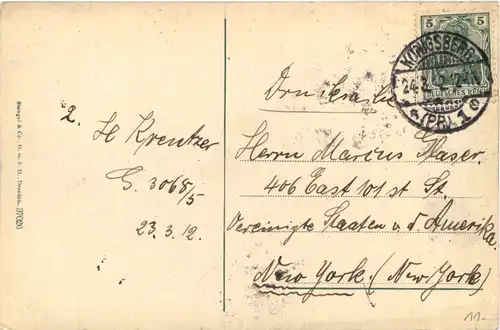 Stengel & Co., G. m. b. H., Dresden. 37026
2. H Kreutzer
G. 3068/5
23.3.12.
5 5
DEUTSCHES REICH
KÖNIGSBERG
24.3.
* (PR). 1 c
Drucksache
Herrn Marcus Glaser.
406 East 101 st St.
Vereinigte Staaten v. d Amerika.
New York. (New York)
11-